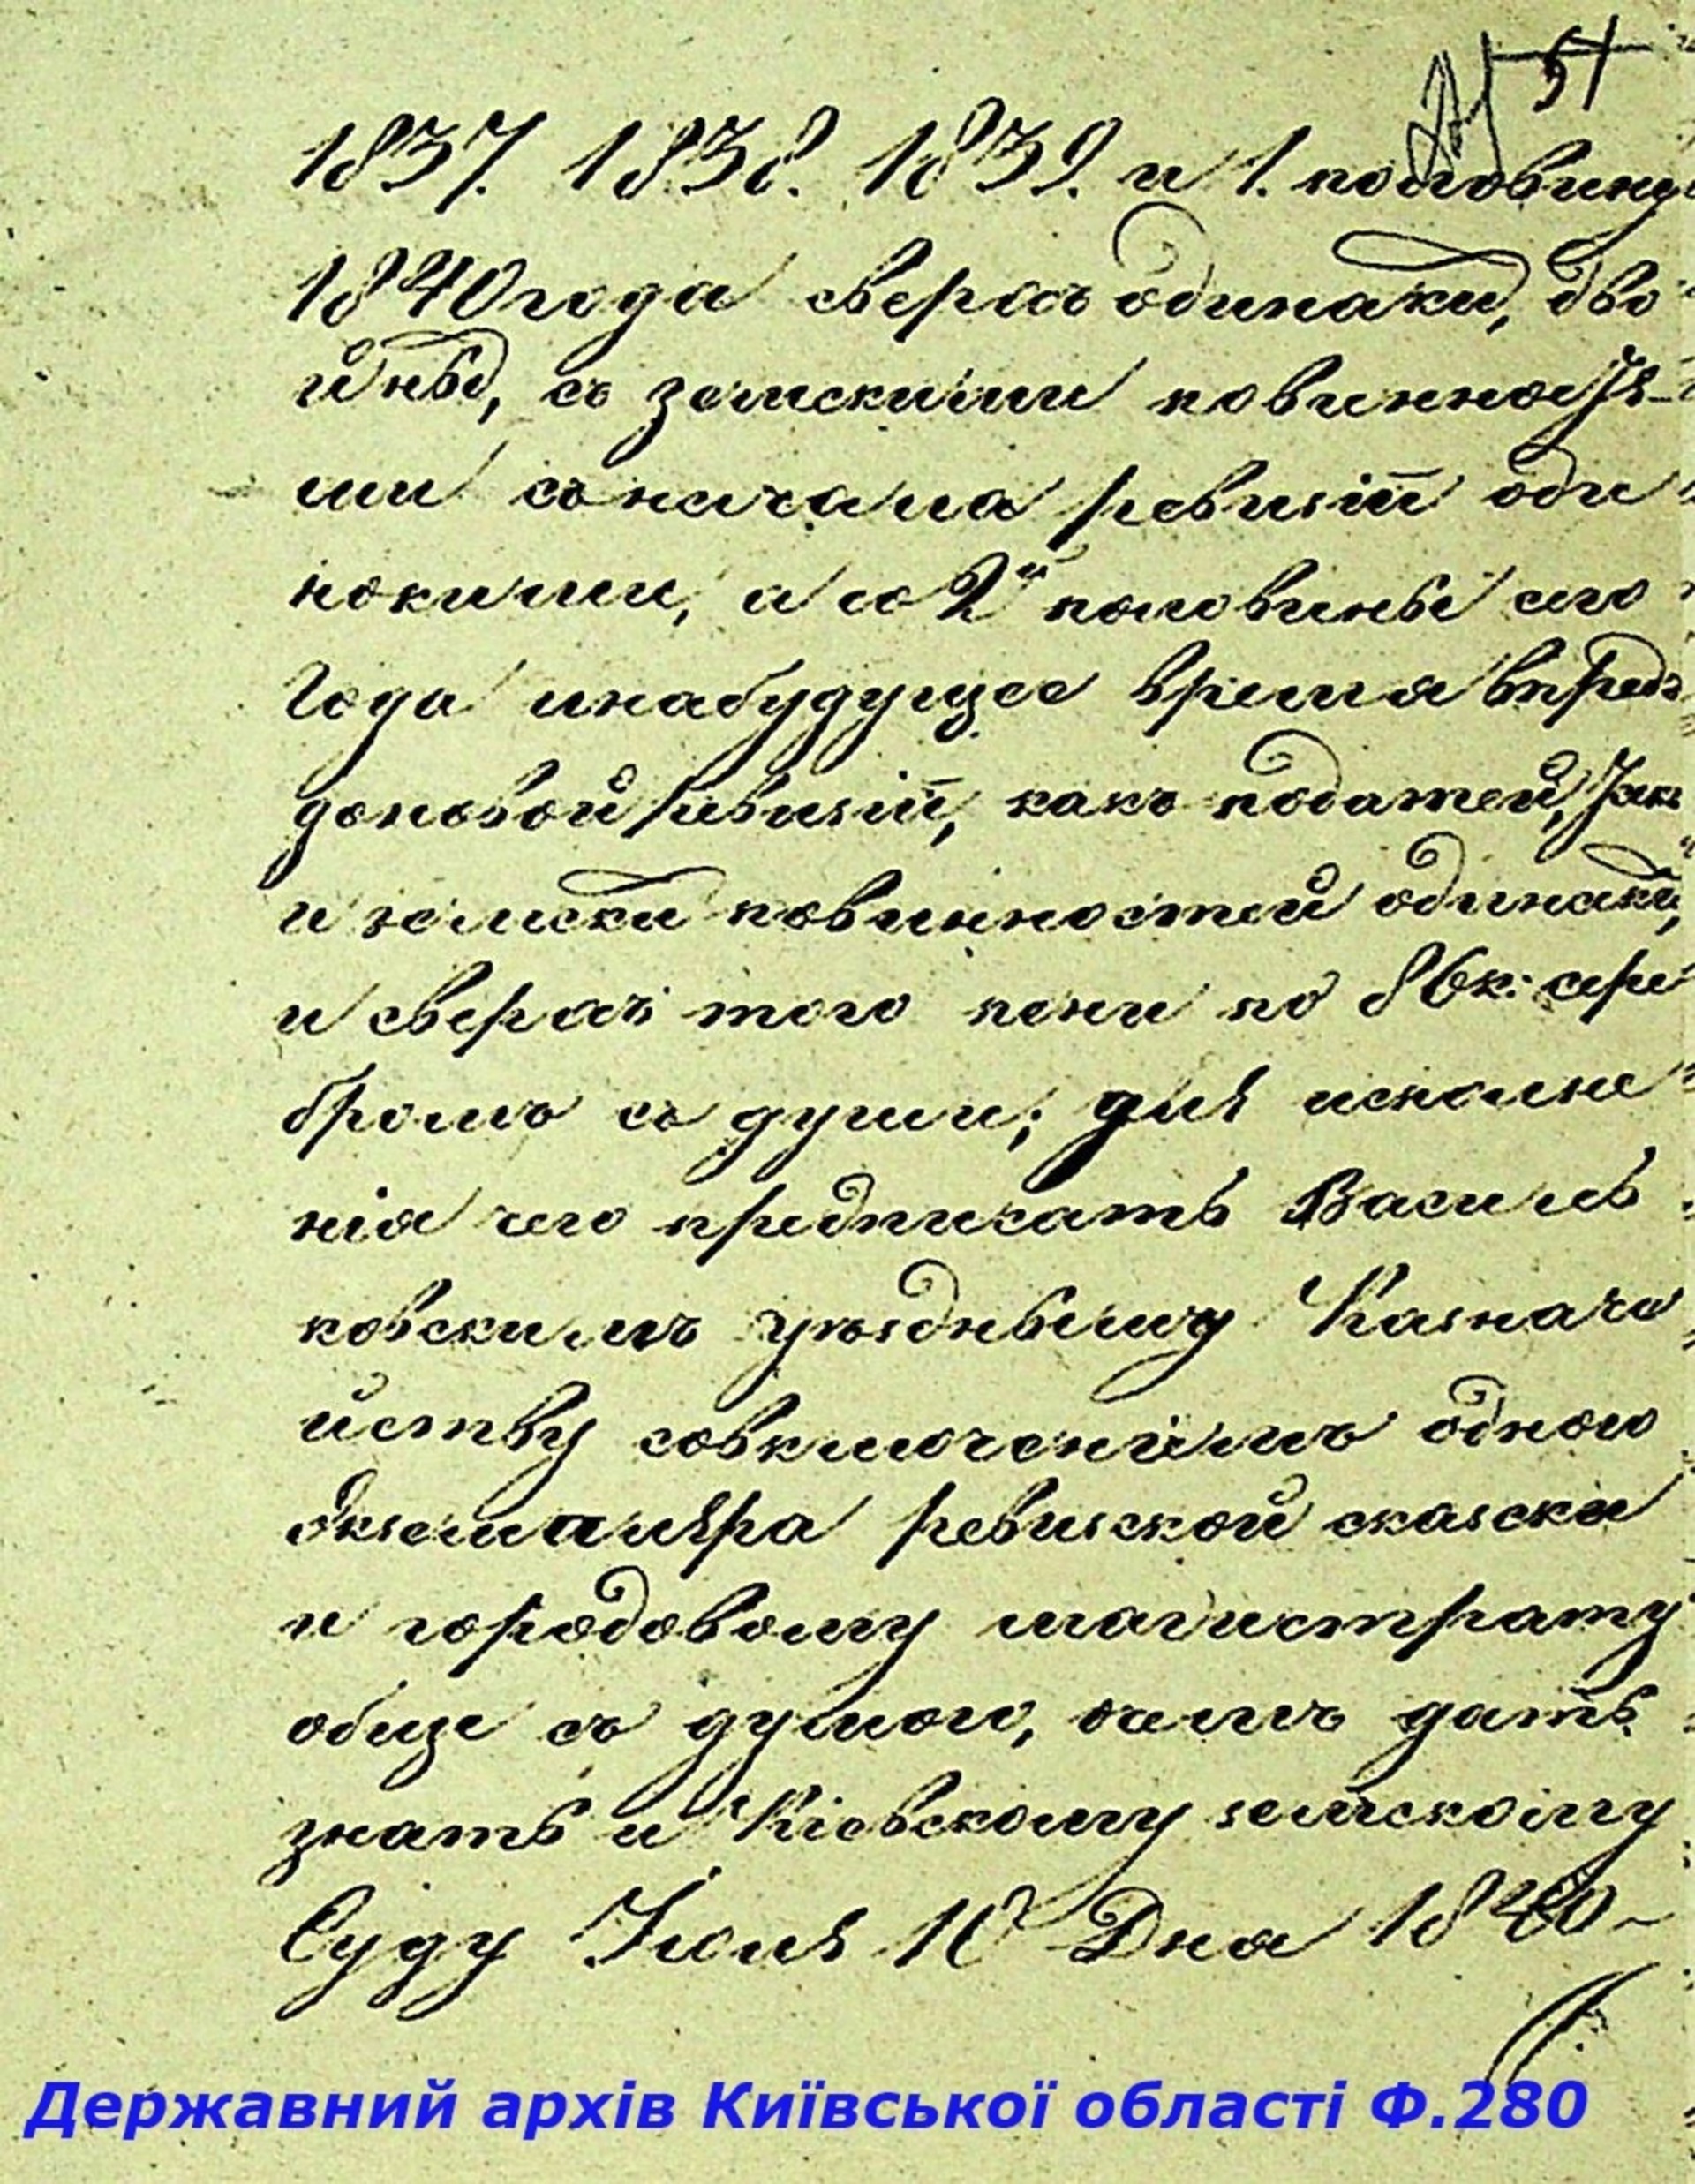 51
1837. 1838. 1839. и 1. половину
1840 года сверхъ одинакихъ, дво
йныхъ, съ земскими повинностя-
ми съ начала ревизіи оди
нокими, а со 2й половины сего
Года и на будущее время впредь
до новой ревизіи, какъ податей, такъ
и земских повинностей одинакихъ,
и сверхъ того пени по 86 к: сере
бромъ съ души; для исполне
нія чего предписать Василь
ковскимъ уѣзднымъ Казначе
йству со включеніемъ одного
экземпляра ревизской сказски
и городовому магистрату
обще съ думою, о чемъ дать
знать и Кіевскому земскому
Суду Іюля 10 Дня 1840 ~
Державний архів Київської області Ф.280